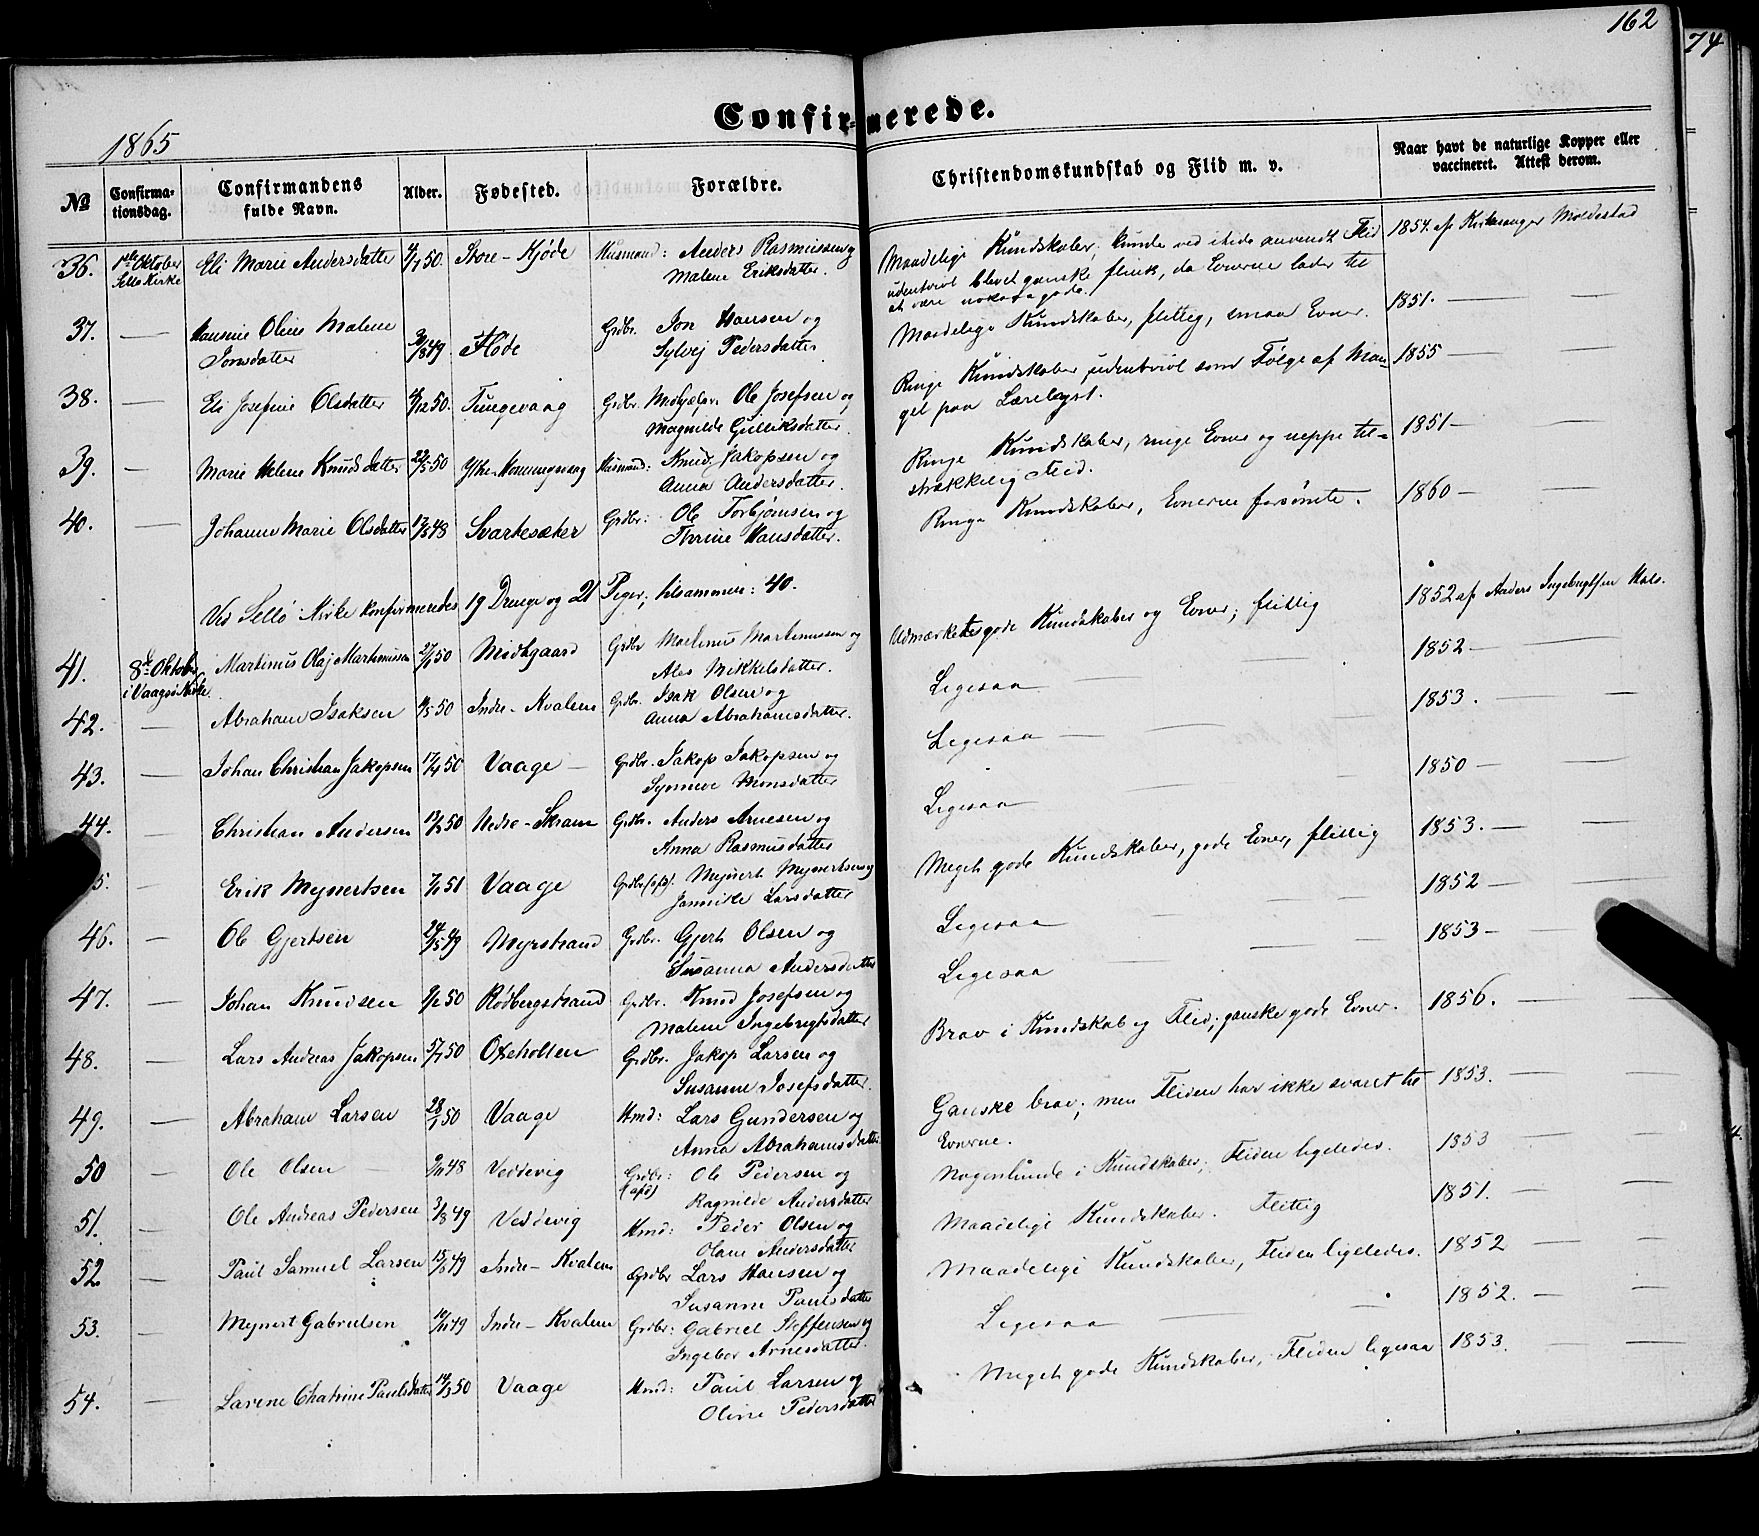 162
74
Confirmerede.
1865
No
Confirma-
tionsdag.
Confirmandens
fulde Navn.
Alder.
Fødested.
Forældre.
Christendomskundskab og Flid m. v.
Naar havt de naturlige Kopper eller
vaccineret. Attest derom.
36. 1ste Oktober Eli Marie Andersdatter 4/7 50. Store-Kjøde Husmand: Anders Rasmussen og Maadelige Kundskaber; kunde ved stede anvendt Flid 1854. af Kirkesanger Moldestad
Sellø Kirke Malene Eriksdatter. udentvivl blevet ganske flink, da Evnerne lader til
at være nokså gode.
37. — Hansine Oline Malene Grdbr. Jon Hansen og Maadelige Kundskaber, flittig, smaa Evner. 1851. — —
Jonsdatter 49 Flode Sylvej Pedersdatter
38. — Eli Josefine Olsdatter 50. Tungevaag Grdbr. Ole Josefsen og Ringe Kundskaber, udentvivl som Følge af Man- 1855 — —
Magnilde Gulliksdatter. gel paa Lærelyst.
39. — Marie Helene Knudsdatter 22/5 50 Ytre-Hommengvaag Husmand: Knud Jakopsen og Ringe Kundskaber, ringe Evner og neppe til- 1851 — —
Anna Andersdatter. strækkelig Flid.
40. — Johanne Marie Olsdatter 48 Svartesæter Grdbr: Ole Torbjørnsen og Ringe Kundskaber, Evnerne forsømte. 1860 — —
Thrine Hansdatter.
Ved Sellø Kirke konfirmeredes 19 Drenge og 21 Piger; tilsammen: 40.
41. 8de Oktober Martinus Olaj Martinussen 50 Midtgaard Grdbr Martinus Martinussen og Udmærkede gode Kundskaber og Evner; flittig 1852 af Anders Ingebrigtsen Hals.
i Vaagsø Kirke. Ales Mikkelsdatter.
42. — Abraham Isaksen 50 Indre-Kvalem Grdbr. Isak Olsen og Ligesaa — 1852 — —
Anna Abrahamsdatter.
43. — Johan Christian Jakopsen 50 Vaage — Grdbr. Jakop Jakopsen og Ligesaa — — 1853. — —
Synneve Monsdatter
44. — Christian Andersen 50 Nedre-Skram Grdbr. Anders Arnesen og Ligesaa — — 1850 — —
Anna Rasmusdatter
5. — Erik Mynertsen 51 Vaage Grdbr (afs). Mynert Mynertsen og Meget gode Kundskaber, gode Evner, flittig 1853. — —
Jannike Larsdatter
46. — Ole Gjertsen 24/5 49 Myrstrand Grdbr. Gjert Olsen og Ligesaa — — 1852 — —
Susanna Andersdatter
47. — Johan Knudsen 50 Rødbergstrand Grdbr. Knud Josefsen og Ligesaa — — 1853 — —
Malene Ingebrigtsdatter
48. — Lars Andreas Jakopsen 50 Oxeholten Grdbr. Jakop Larsen og Brav i Kundskab og Flid; ganske gode Evner. 1856. — —
Susanne Josefsdatter.
49. — Abraham Larsen 28/1 50 Vaage Hmd: Lars Gundersen og Ganske brav; men Fliden har ikke svaret til 1853. — —
Anna Abrahamsdatter Evnerne.
50 — Ole Olsen — 48 Veddevig Grdbr: Ole Pedersen og Nogenlunde i Kundskaber; Fliden ligeledes. 1853 — —
(afs) Ragnilde Andersdatter
51. — Ole Andreas Pedersen 3/8 49 Veddevig Hmd: Peder Olsen og Maadelige Kundskaber. Flittig 1851. — —
Olane Andersdatter
52. — Paul Samuel Larsen 49 Indre-Kvalem Grdbr Lars Hansen og Maadelige Kundskaber, Fliden ligeledes. 1852 — —
Susanne Paulsdatter
53. — Mynert Gabrielsen 49 Indre-Kvalem Grdbr: Gabriel Steffensen og Ligesaa — — 1852. — —
Ingebor Arnesdatter.
54. — Larine Chatrine Paulsdatter 50 Vaage Hmd: Paul Larsen og Meget gode Kundskaber, Fliden ligesaa 1853. — —
Oline Pedersdatter